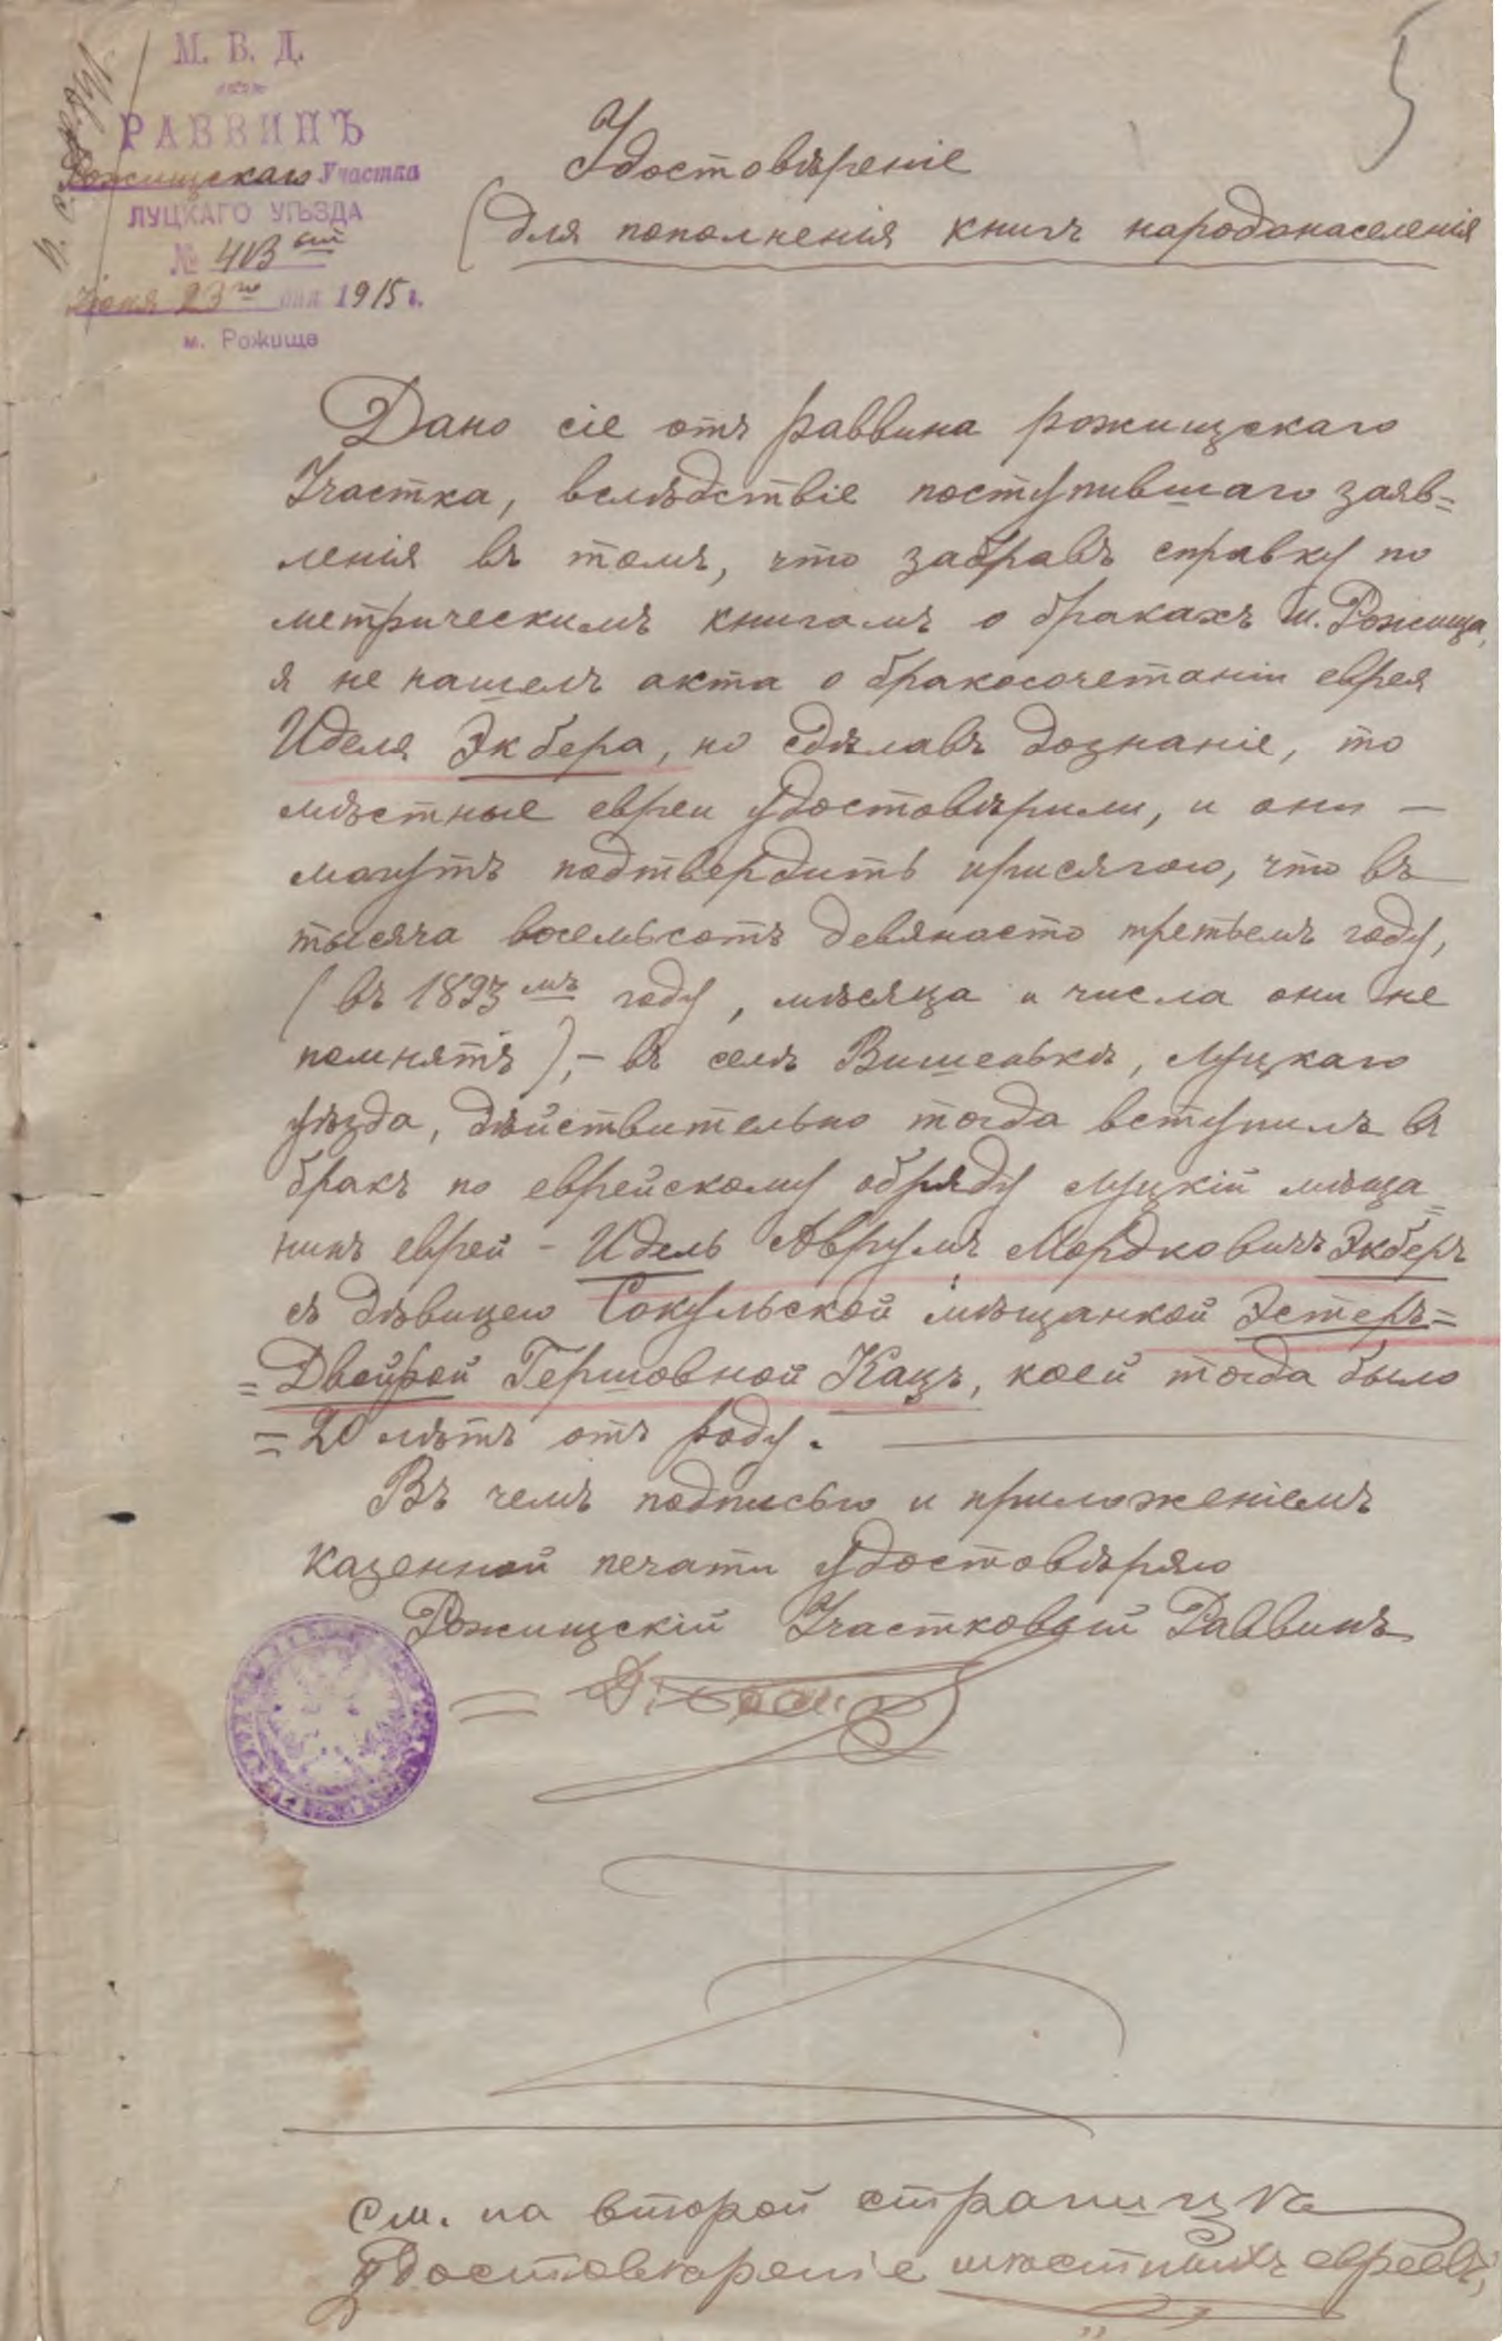 5
М. В. Д.
РАВВИНЪ
Рожищскаго Участка
ЛУЦКАГО УѢЗДА
№ 413
Іюня 23го дня 1915 г.
м. Рожище
Удостовѣреніе
(для пополненія книгъ народонаселенія
Дано сіе отъ раввина рожищскаго
Участка, вслѣдствіе поступившаго заяв=
ленія въ томъ, что забравъ справку по
метрическимъ книгамъ о бракахъ м. Рожища,
я не нашелъ акта о бракосочетаніи еврея
Иделя Экбера, но сдѣлавъ дознаніе, то
мѣстные евреи удостовѣрили, и они —
могутъ подтвердить присягою, что въ
тысяча восемьсотъ девяносто третьемъ году,
(въ 1893мъ году, мѣсяца и числа они не
помнятъ),- въ селѣ Вишенькѣ, Луцкаго
уѣзда, дѣйствительно тогда вступилъ въ
бракъ по еврейскому обряду луцкій мѣща=
нинъ еврей - Идель Аврумъ Мордковичъ Экберъ
съ дѣвицею Сокульской мѣщанкой Эстеръ=
=Двойрой Гершовной Кацъ, коей тогда было
=20 лѣтъ отъ роду.
Въ чемъ подписью и приложеніемъ
казенной печати удостовѣряю
Рожищскій Участковый Раввинъ
См. на второй страницѣ
удостовѣреніе мѣстныхъ евреевъ,